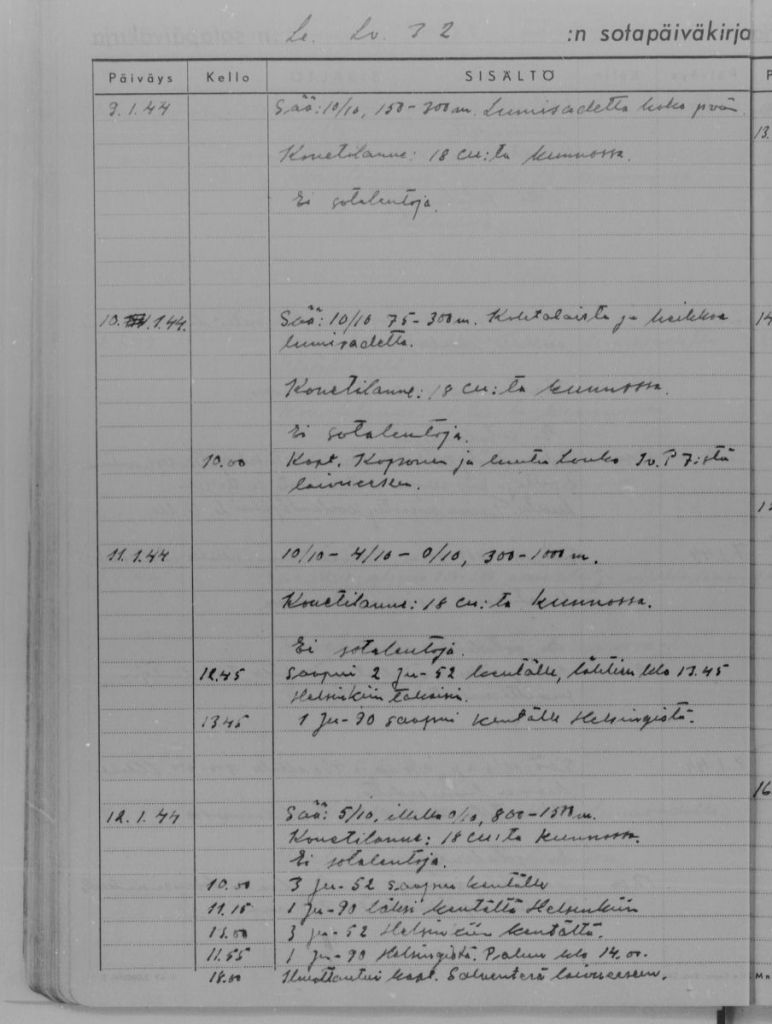 Le. Lv. 32 :n sotapäiväkirja
Päiväys Kello SISÄLTÖ
9.1.44 Sää: 10/10, 150-300 m. Lumisadetta koko pvän.
Konetilanne: 18 cu:ta kunnossa.
Ei sotalentoja.
10.1.44. Sää: 10/10 75-300 m. Kohtalaista ja heikkoa
lumisadetta.
Konetilanne: 18 cu:ta kunnossa.
Ei sotalentoja.
10.00 Kapt. ja luutn. Lv. P 7:stä
laivueeseen.
11.1.44 10/10 - 4/10 - 0/10, 300-1000 m.
Konetilanne: 18 cu:ta kunnossa.
Ei sotalentoja.
12.45 Saapui 2 Ju-52 kentälle, lähtien klo 13.45
Helsinkiin takaisin.
13.45 1 Ju-90 saapui kentälle Helsingistä.
12.1.44 Sää: 5/10, illalla 0/10, 800-1500 m.
Konetilanne: 18 cu:ta kunnossa.
Ei sotalentoja.
10.00 3 Ju-52 saapui kentälle
11.15 1 Ju-90 läksi kentältä Helsinkiin
3 Ju-52 Helsinkiin kentältä.
11.55 1 Ju-90 Helsingistä. Paluu klo 14.00.
18.00 Ilmoittautui kapt. laivueeseen.